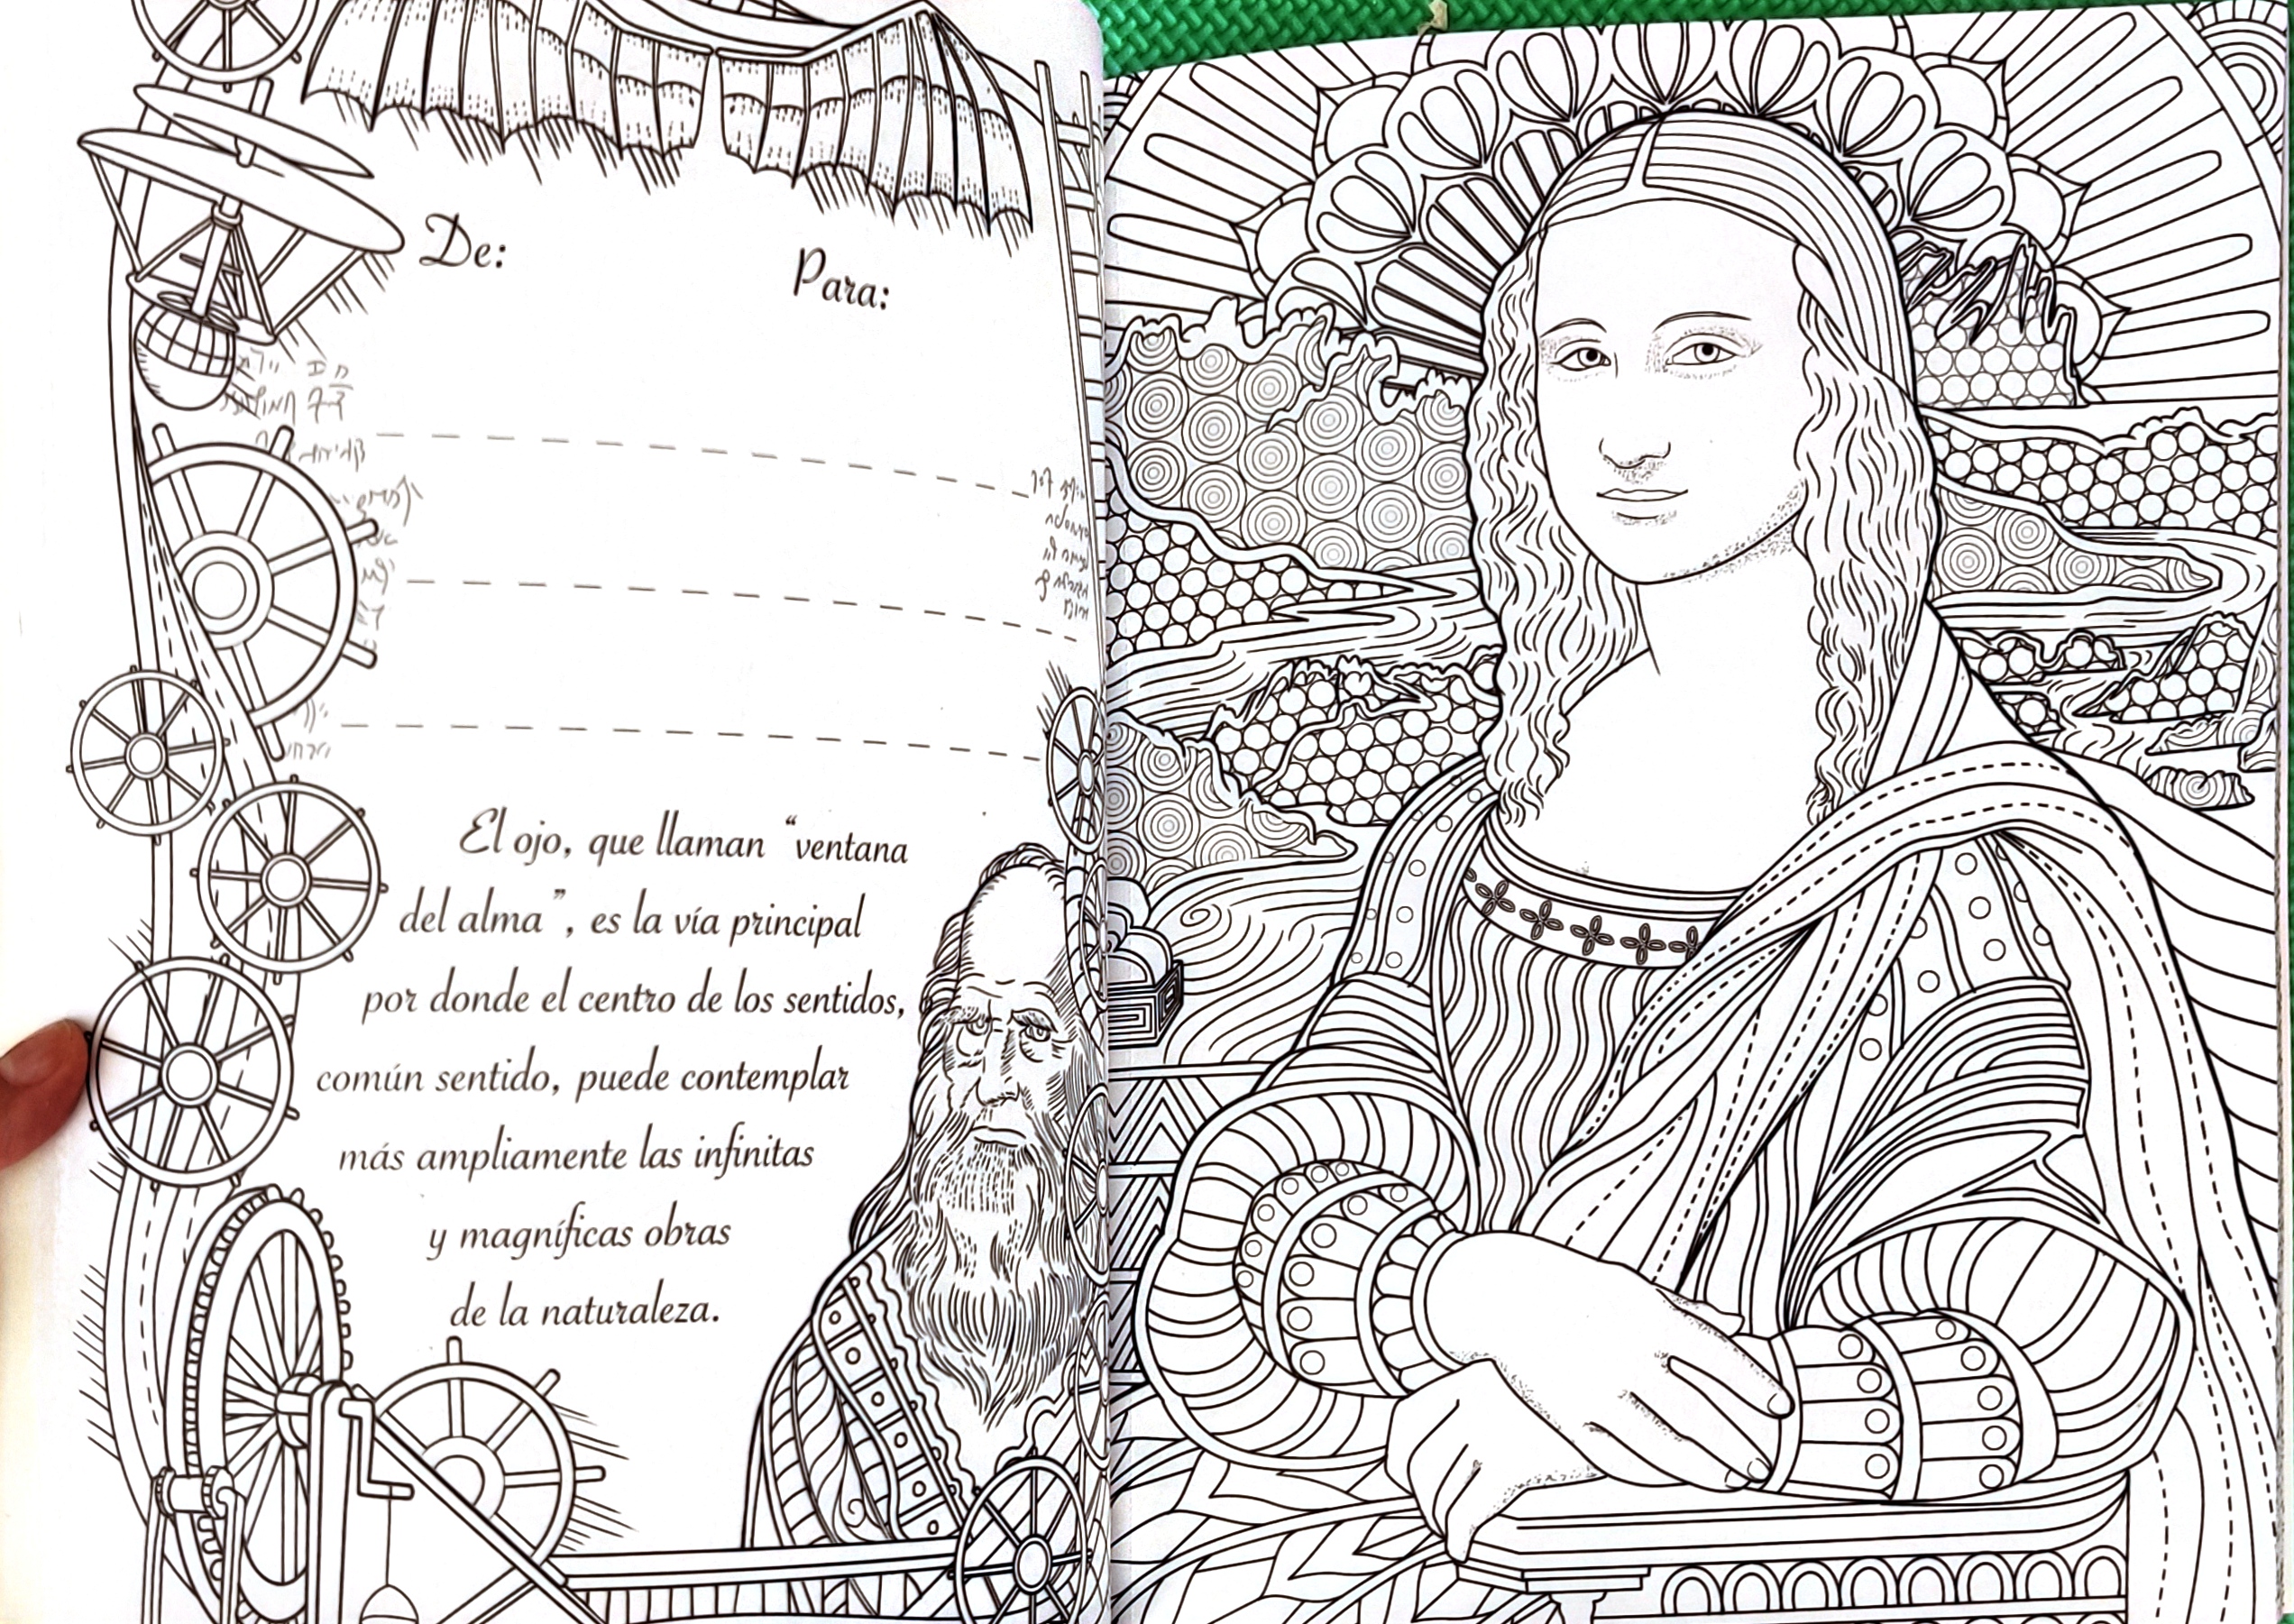 De:
Para:
El ojo, que llaman “ventana
del alma”, es la vía principal
por donde el centro de los sentidos,
común sentido, puede contemplar
más ampliamente las infinitas
y magníficas obras
de la naturaleza.